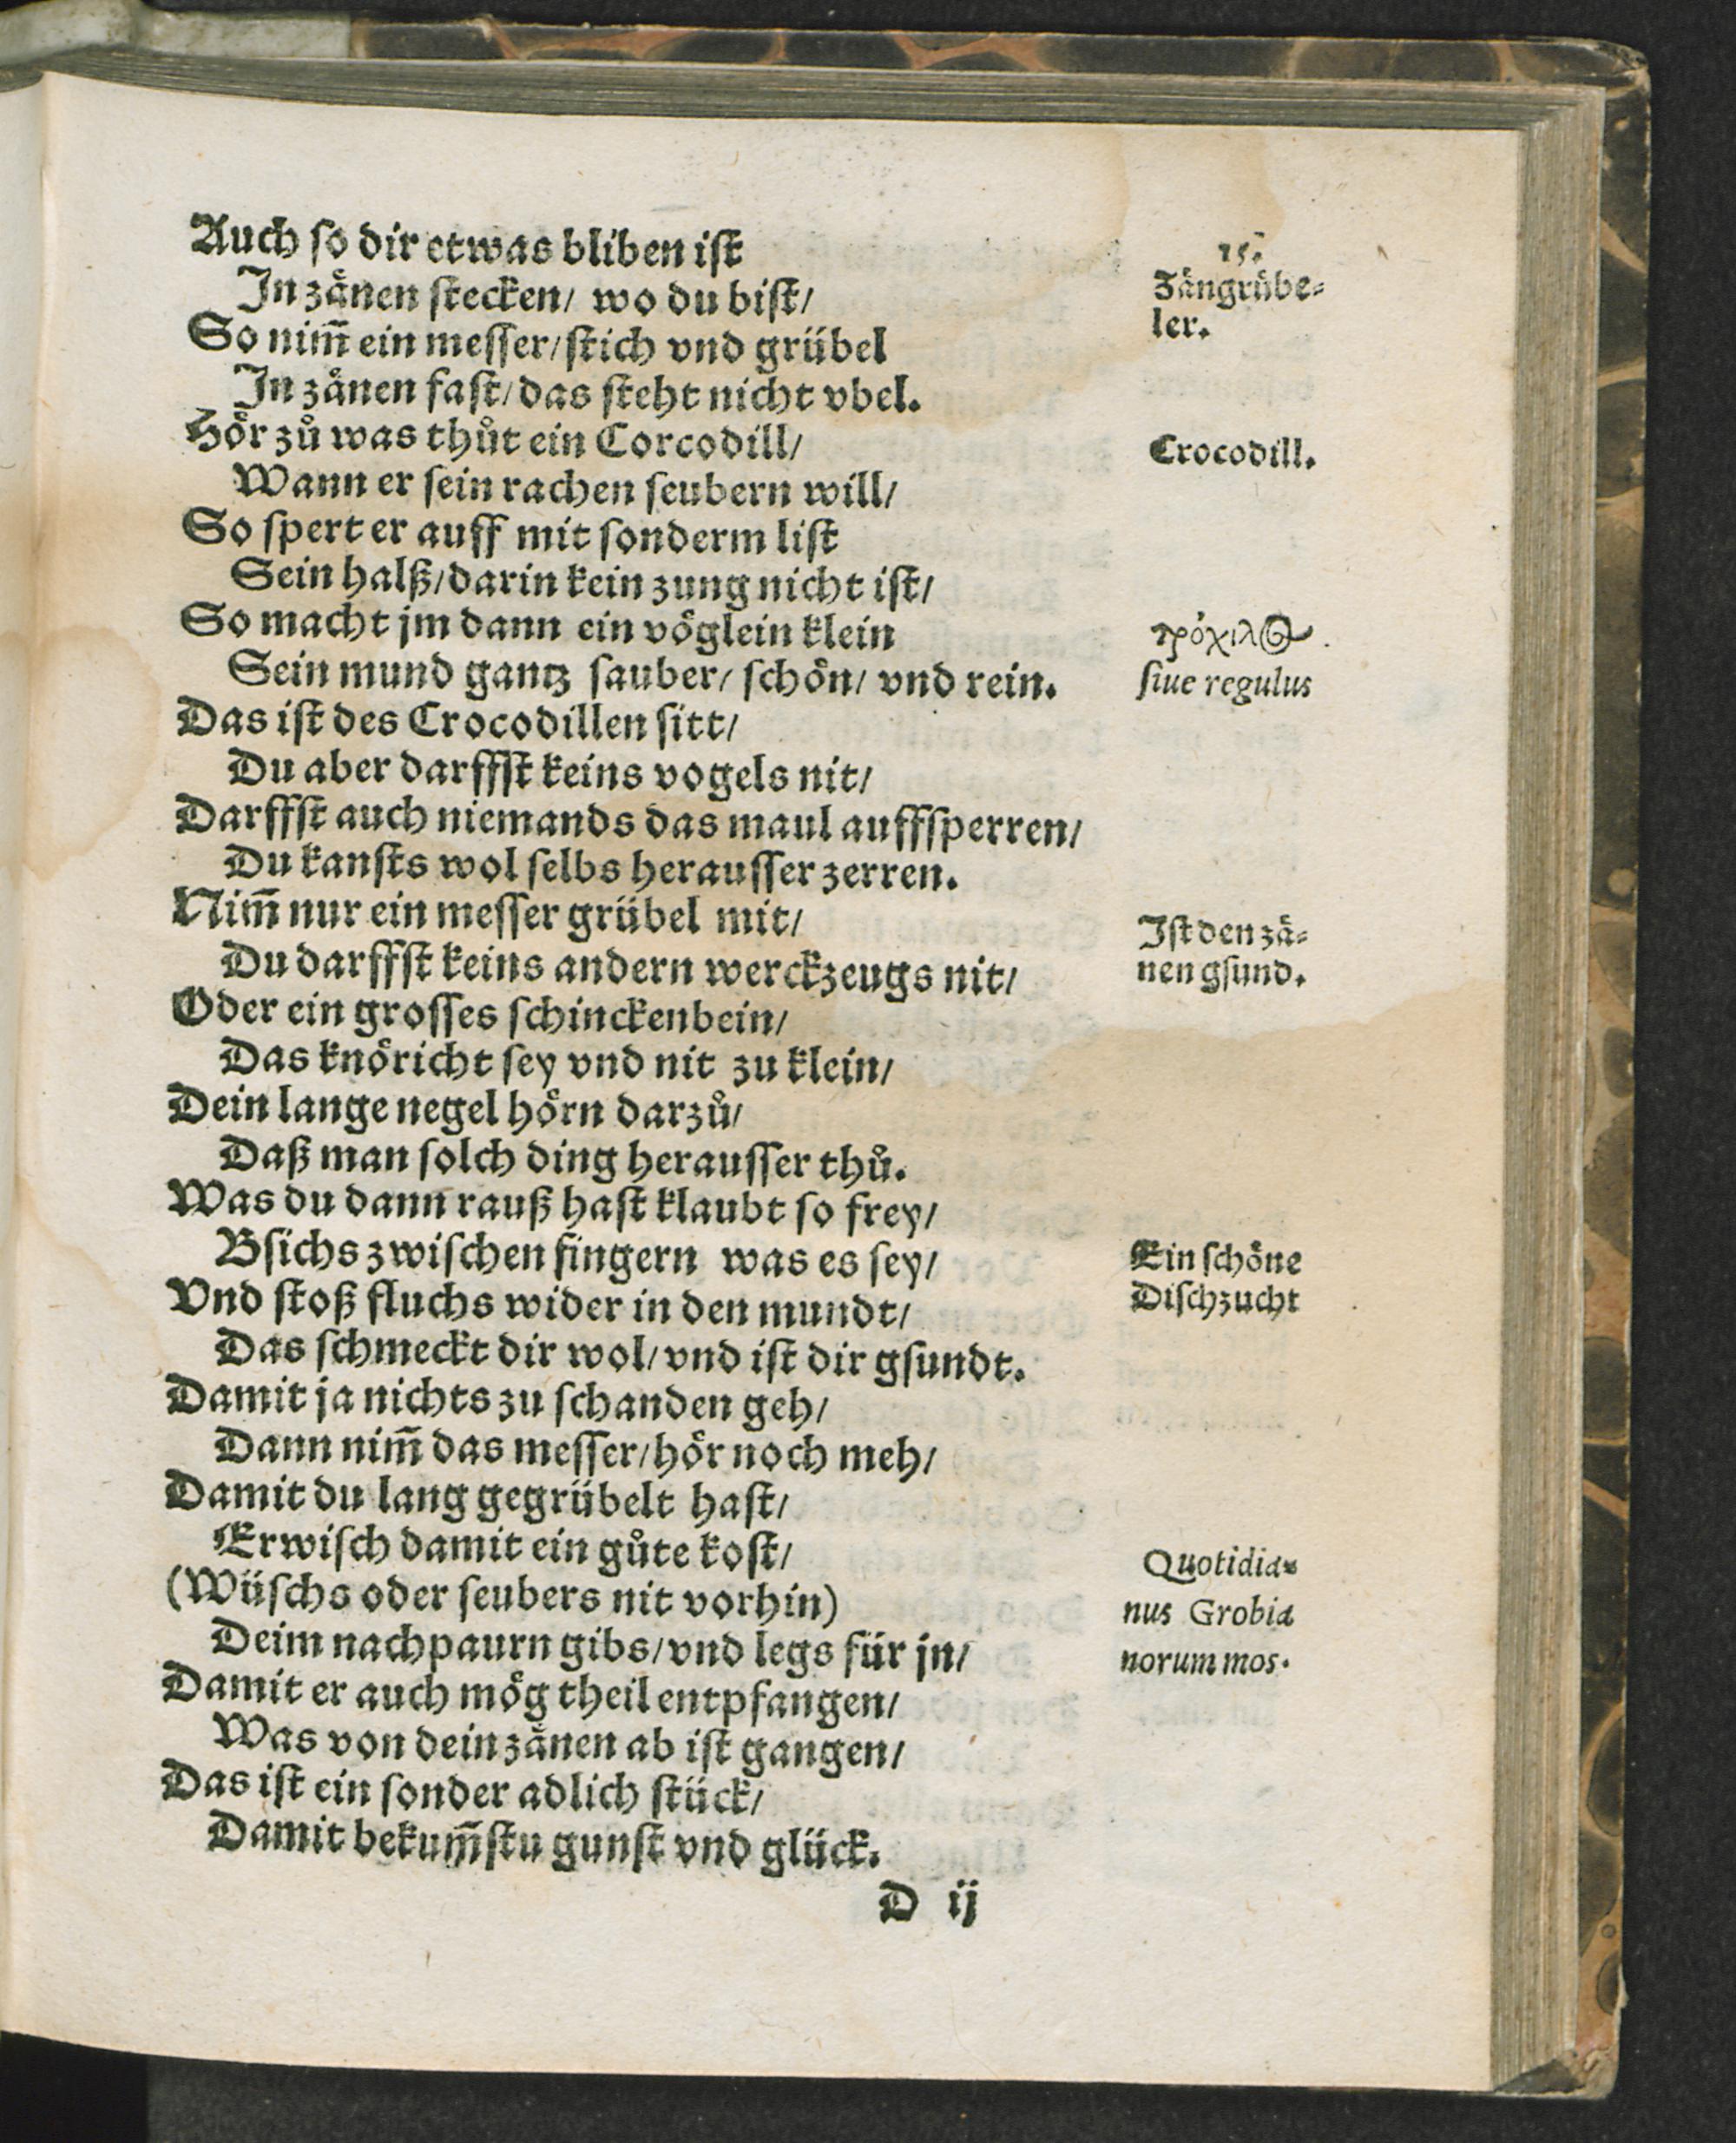 Auch ſo dir etwas bliben iſt
In zaͤnen ſtecken/ wo du biſt/
So nim̄ ein meſſer/ſtich vnd gruͤbel
In zaͤnen faſt/das ſteht nicht vbel.
Hoͤr zuͦ was thuͦt ein Corcodill/
Wann er ſein rachen ſeubern will/
So ſpert er auff mit ſonderm liſt
Sein halß/darin kein zung nicht iſt/
So macht jm dann ein voͤglein klein
Sein mund gantz ſauber/ ſchoͤn/ vnd rein.
Das iſt des Crocodillen ſitt/
Du aber darffſt keins vogels nit/
Darffſt auch niemands das maul auffſperren/
Du kanſts wol ſelbs herauſſer zerren.
Nim̄ nur ein meſſer gruͤbel mit/
Du darffſt keins andern werckzeugs nit/
Oder ein groſſes ſchinckenbein/
Das knoͤricht ſey vnd nit zu klein/
Dein lange negel hoͤrn darzuͦ/
Daß man ſolch ding herauſſer thuͦ.
Was du dann rauß haſt klaubt ſo frey/
Bſichs zwiſchen fingern was es ſey/
Vnd ſtoß fluchs wider in den mundt/
Das ſchmeckt dir wol/vnd iſt dir gſundt.
Damit ja nichts zu ſchanden geh/
Dann nim̄ das meſſer/hoͤr noch meh/
Damit du lang gegruͤbelt haſt/
Erwiſch damit ein guͦte koſt/
(Wuͤſchs oder ſeubers nit vorhin)
Deim nachpaurn gibs/vnd legs fuͤr jn/
Damit er auch moͤg theil entpfangen/
Was von dein zaͤnen ab iſt gangen/
Das iſt ein ſonder adlich ſtuͤck/
Damit bekum̄ſtu gunſt vnd gluͤck.
D ij
15.
Zaͤngruͤbe⸗
ler.
Crocodill.
τρόχιλος.
ſiue regulus
Iſt den zaͤ⸗
nen gſund.
Ein ſchoͤne
Diſchzucht
Quotidia⸗
nus Grobia
norum mos.